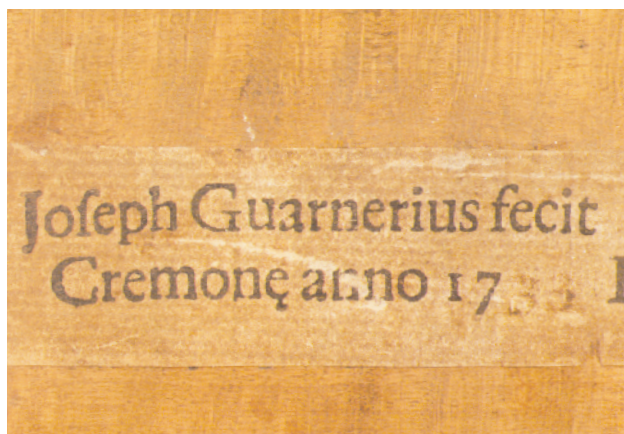 Joſeph Guarnerius fecit
Cremonę anno 17